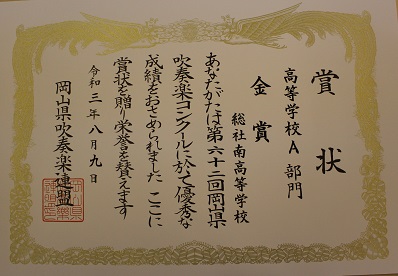 賞状
高等学校A部門
金賞
総社南高等学校
あなたがたは第六十二回岡山県
吹奏楽コンクールに於て優秀な
成績をおさめられました ここに
賞状を贈り栄誉を賛えます
令和三年八月九日
岡山県吹奏楽連盟